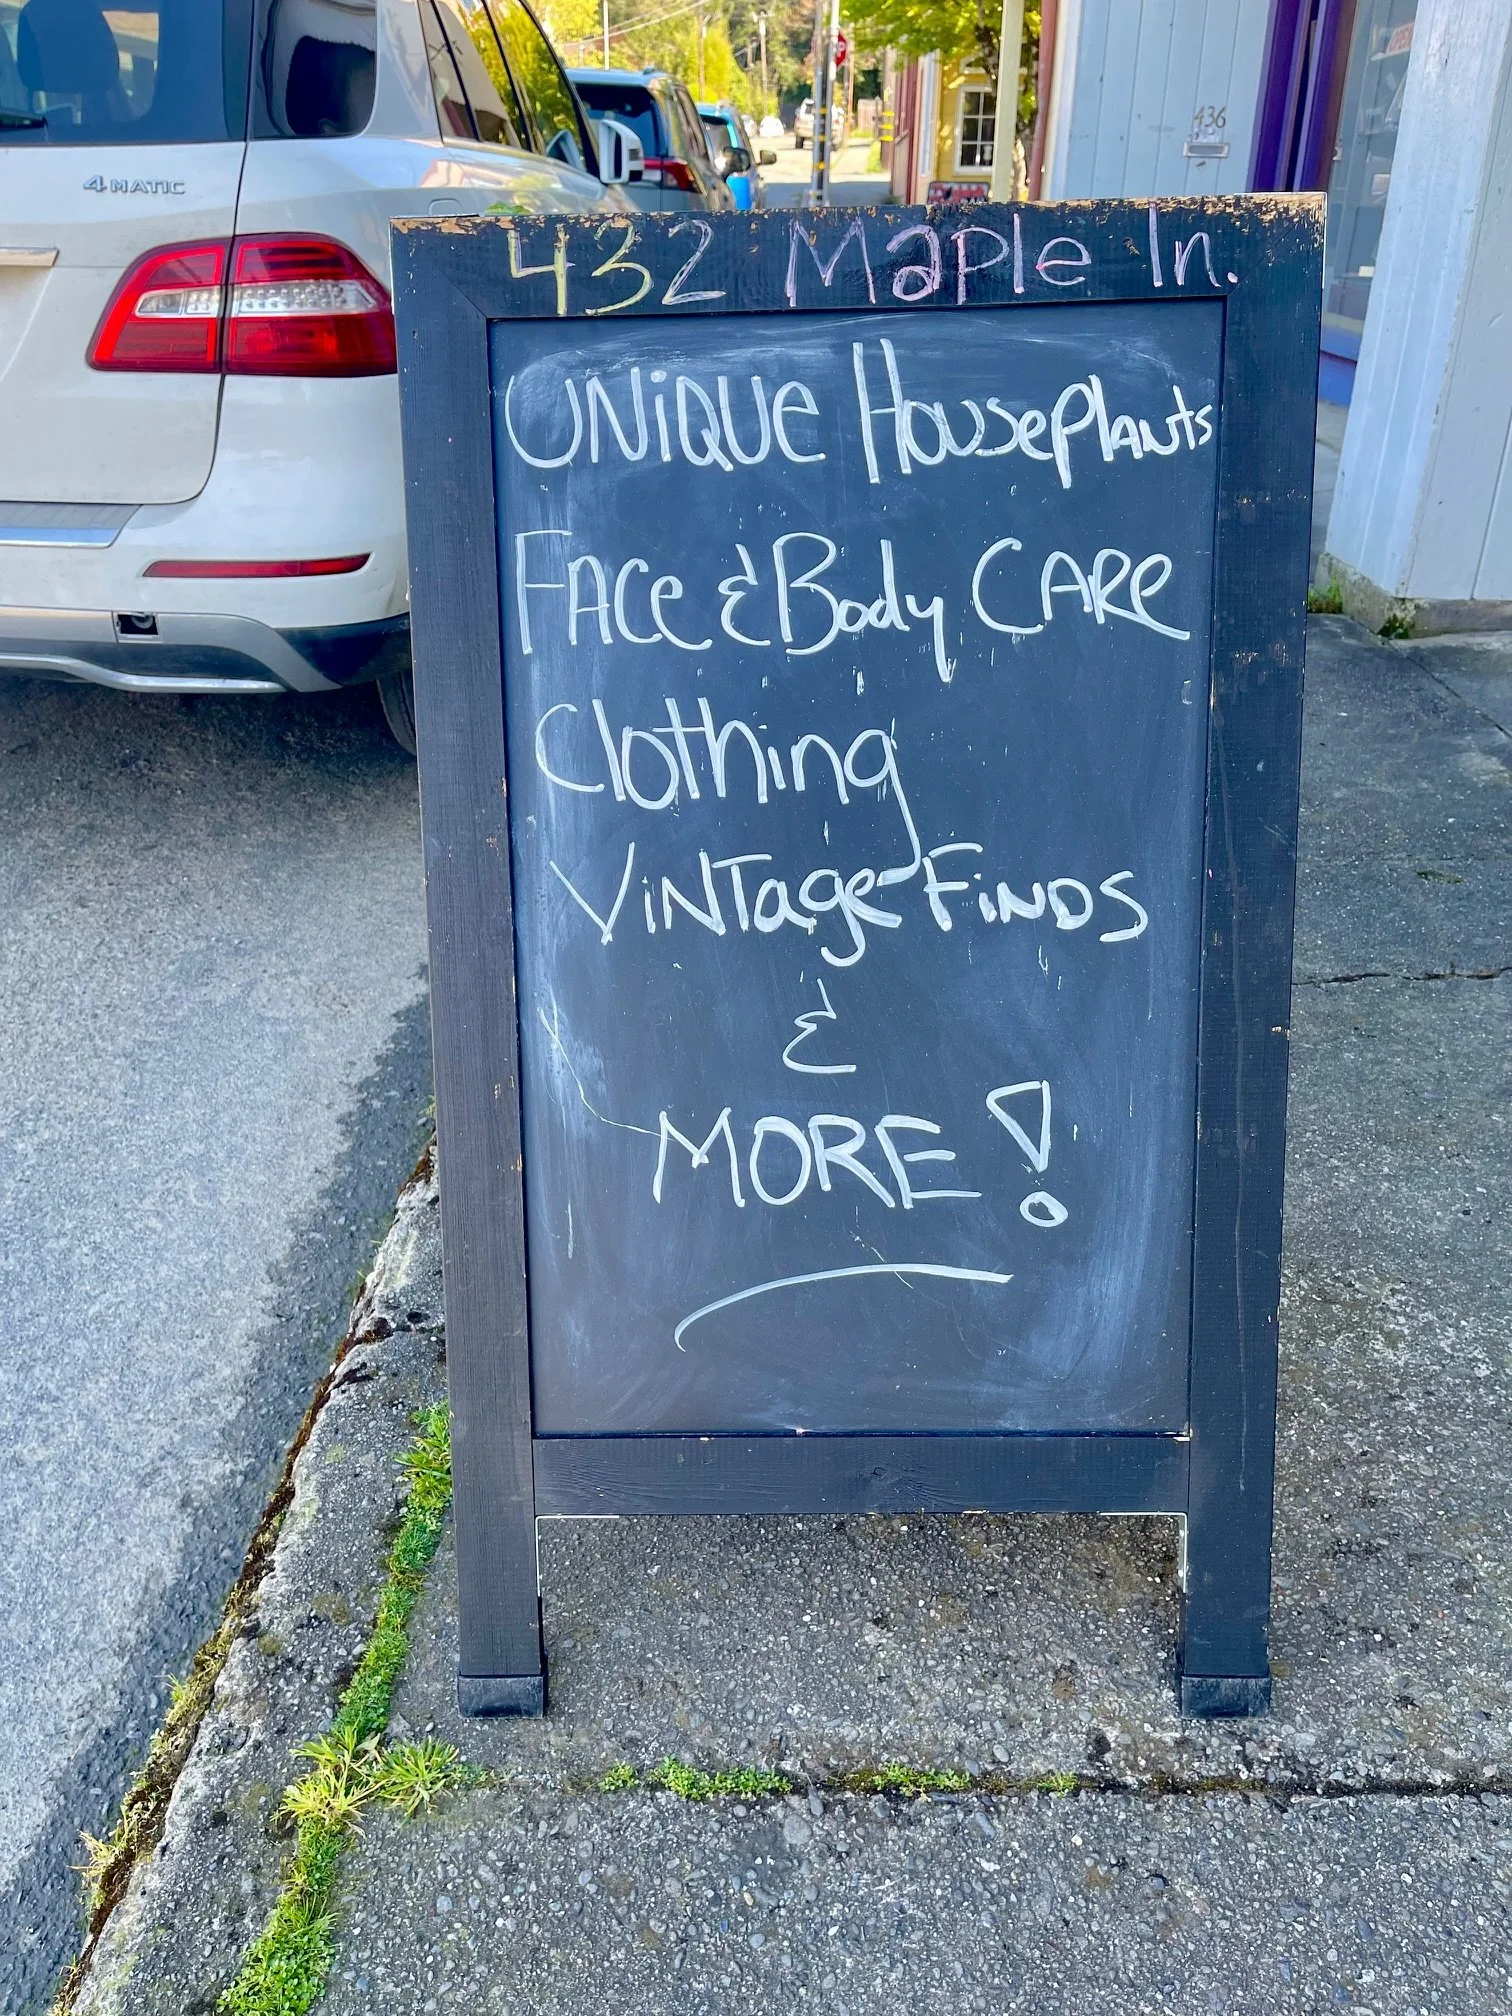 4MATIC
436
432 Maple ln.
UNiQUe HousePlants
FACe & Body CARe
Clothing
ViNTage FiNDS
&
MORE!